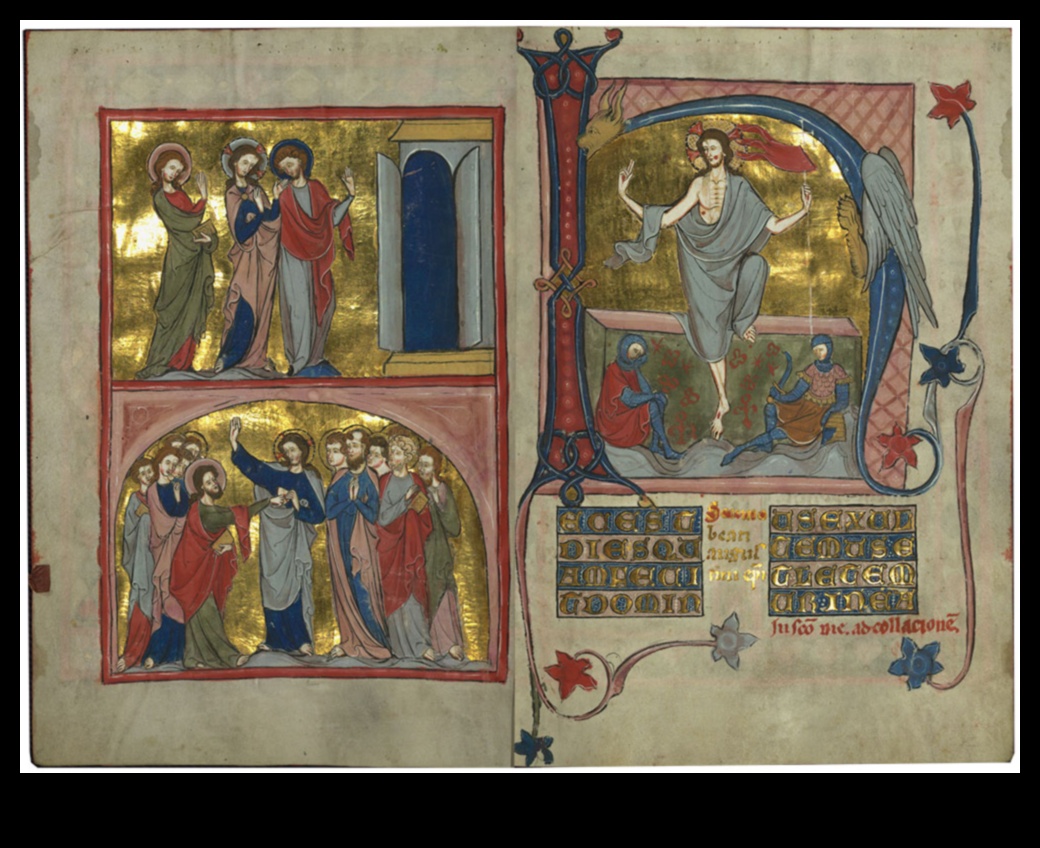 H
ECEST
DIESQU
AMFECI
TDOMIN
Sermo
beati
augus
tini epi
USEXUL
TEMUSE
TLETEM
URINEA
In sco die. ad collacione